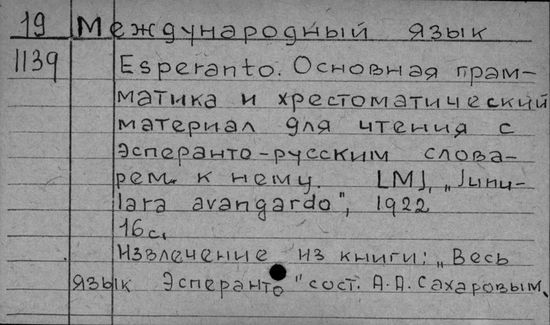 19 Международный язык
1139 Esperanto. Основная грам-
матика и хрестоматический
материал для чтения с
эсперанто-русским слова-
рем к нему. LMJ, „Junu-
lara avangardo", 1922
16 с.
Извлечение из книги: „Весь
язык Эсперанто" сост. А.А. Сахаровым.